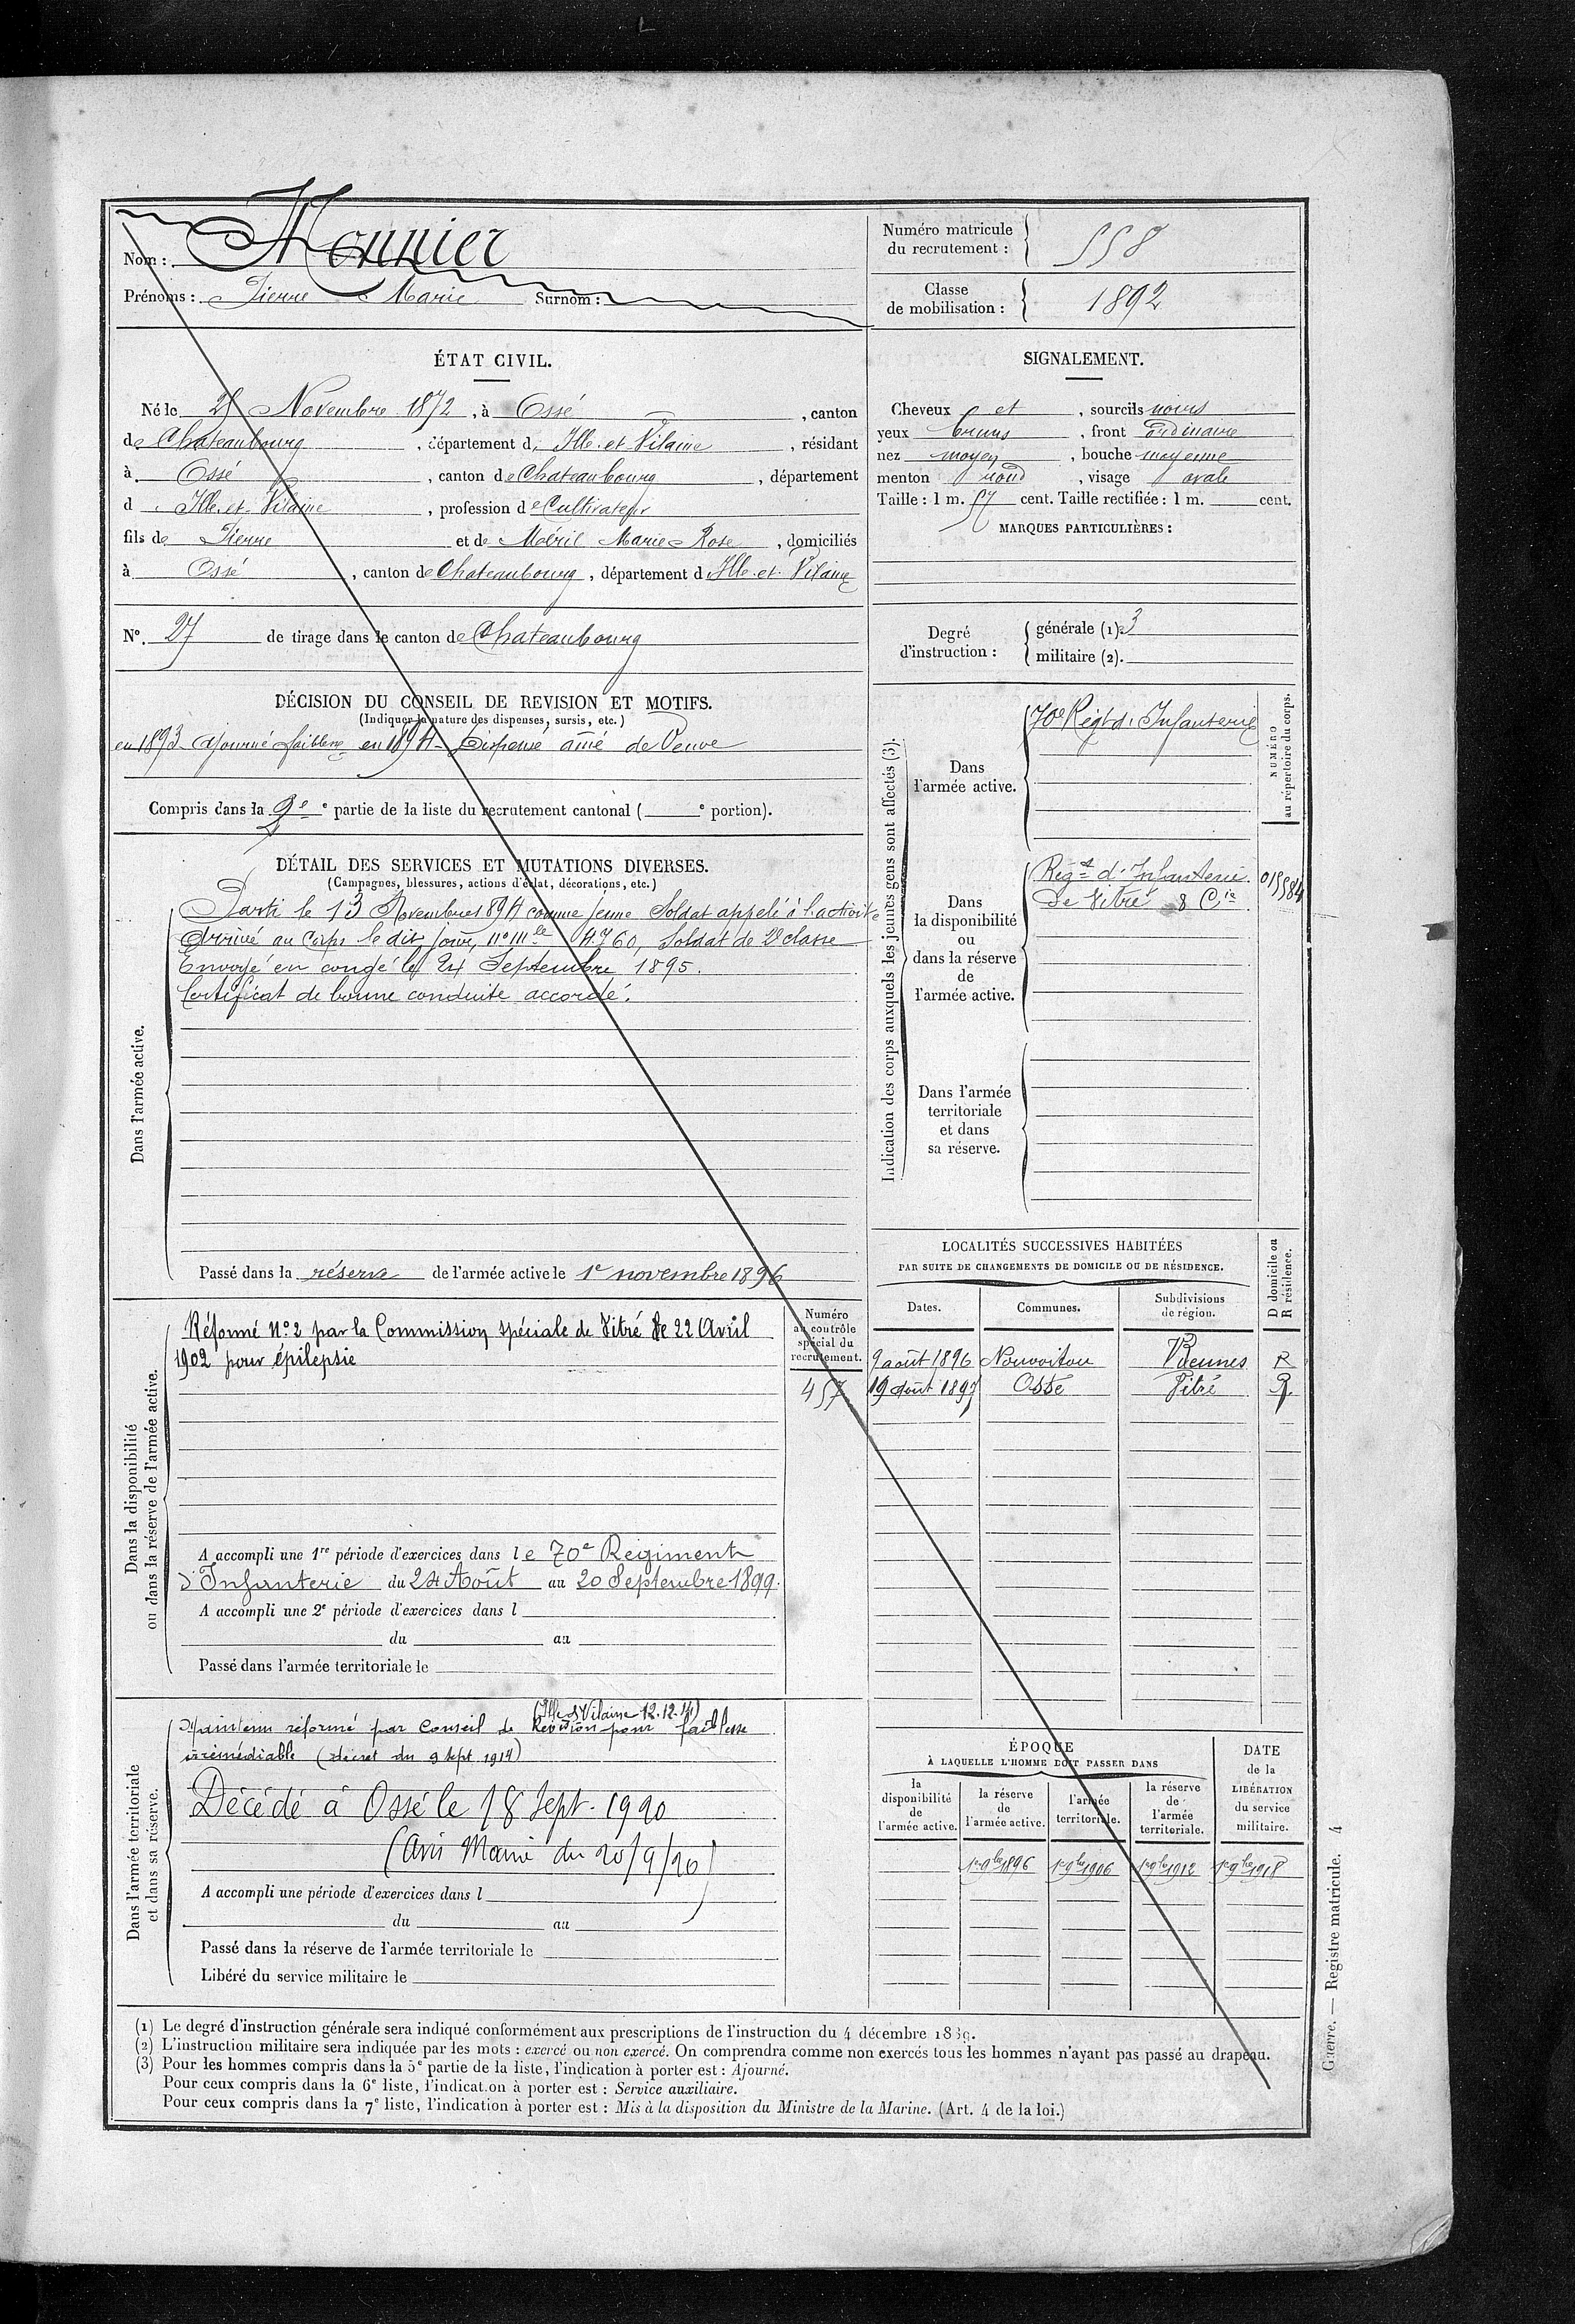 Nom : Monnier
Prénoms : Pierre Marie Surnom :
Numéro matricule du recrutement : 558
Classe de mobilisation : 1892
ÉTAT CIVIL.
Né le 25 Novembre 1872, à Ossé, canton
de Chateaubourg, département d'Ille-et-Vilaine, résidant
à Ossé, canton de Chateaubourg, département
d'Ille-et-Vilaine, profession de Cultivateur
fils de Pierre et de Méril Marie Rose, domiciliés
à Ossé, canton de Chateaubourg, département d'Ille-et-Vilaine
N°. 27 de tirage dans le canton de Chateaubourg
SIGNALEMENT.
Cheveux et, sourcils noirs
yeux bruns, front ordinaire
nez moyen, bouche moyenne
menton rond, visage ovale
Taille : 1 m. 57 cent. Taille rectifiée : 1 m. cent.
MARQUES PARTICULIÈRES :
Degré d'instruction : générale (1). 3
militaire (2).
DÉCISION DU CONSEIL DE REVISION ET MOTIFS.
(Indiquer la nature des dispenses, sursis, etc.)
en 1893 ajourné faiblesse en 1894 - Dispensé aîné de Veuve
Compris dans la 2e e partie de la liste du recrutement cantonal ( e portion).
DÉTAIL DES SERVICES ET MUTATIONS DIVERSES.
(Campagnes, blessures, actions d'éclat, décorations, etc.)
Dans l'armée active.
Parti le 13 Novembre 1894 comme jeune Soldat appelé à l'activité
Arrivé au Corps le dit jour, n° mle 4760, Soldat de 2e classe
Envoyé en congé le 24 Septembre 1895.
Certificat de bonne conduite accordé.
Passé dans la réserve de l'armée active le 1e novembre 1896
Indication des corps auxquels les jeunes gens sont affectés (3).
NUMÉRO au répertoire du corps.
Dans l'armée active.
70e Régt d'Infanterie
Dans la disponibilité ou dans la réserve de l'armée active.
Régt d'Infanterie
de Vitré 8 Cie
01584
Dans l'armée territoriale et dans sa réserve.
Dans la disponibilité ou dans la réserve de l'armée active.
Réformé N° 2 par la Commission spéciale de Vitré le 22 Avril
1902 pour épilepsie
Numéro au contrôle spécial du recrutement.
457
A accompli une 1re période d'exercices dans le 70e Régiment
d'Infanterie du 24 Août au 20 Septembre 1899.
A accompli une 2e période d'exercices dans l
du au
Passé dans l'armée territoriale le
LOCALITÉS SUCCESSIVES HABITÉES
PAR SUITE DE CHANGEMENTS DE DOMICILE OU DE RÉSIDENCE.
Dates. Communes. Subdivisions de région. D domicile ou R résidence.
9 août 1896 Nouvoitou Rennes R
19 Août 1897 Ossé Vitré R
Dans l'armée territoriale et dans sa réserve.
(Ille &Vilaine 12.12.14)
Maintenu réformé par Conseil de Revision pour faiblesse
irrémédiable (décret du 9 sept 1914)
Décédé à Ossé le 18 Sept. 1920
(Avis Mairie du 20/9/20)
A accompli une période d'exercices dans l
du au
Passé dans la réserve de l'armée territoriale le
Libéré du service militaire le
ÉPOQUE
À LAQUELLE L'HOMME DOIT PASSER DANS
la disponibilité de l'armée active. la réserve de l'armée active. l'armée territoriale. la réserve de l'armée territoriale. DATE de la LIBÉRATION du service militaire.
1er 9bre 1896 1er 9bre 1906 1er 9bre 1912 1er 9bre 1918
(1) Le degré d'instruction générale sera indiqué conformément aux prescriptions de l'instruction du 4 décembre 1889.
(2) L'instruction militaire sera indiquée par les mots : exercé ou non exercé. On comprendra comme non exercés tous les hommes n'ayant pas passé au drapeau.
(3) Pour les hommes compris dans la 5e partie de la liste, l'indication à porter est : Ajourné.
Pour ceux compris dans la 6e liste, l'indication à porter est : Service auxiliaire.
Pour ceux compris dans la 7e liste, l'indication à porter est : Mis à la disposition du Ministre de la Marine. (Art. 4 de la loi.)
Guerre. — Registre matricule. 4